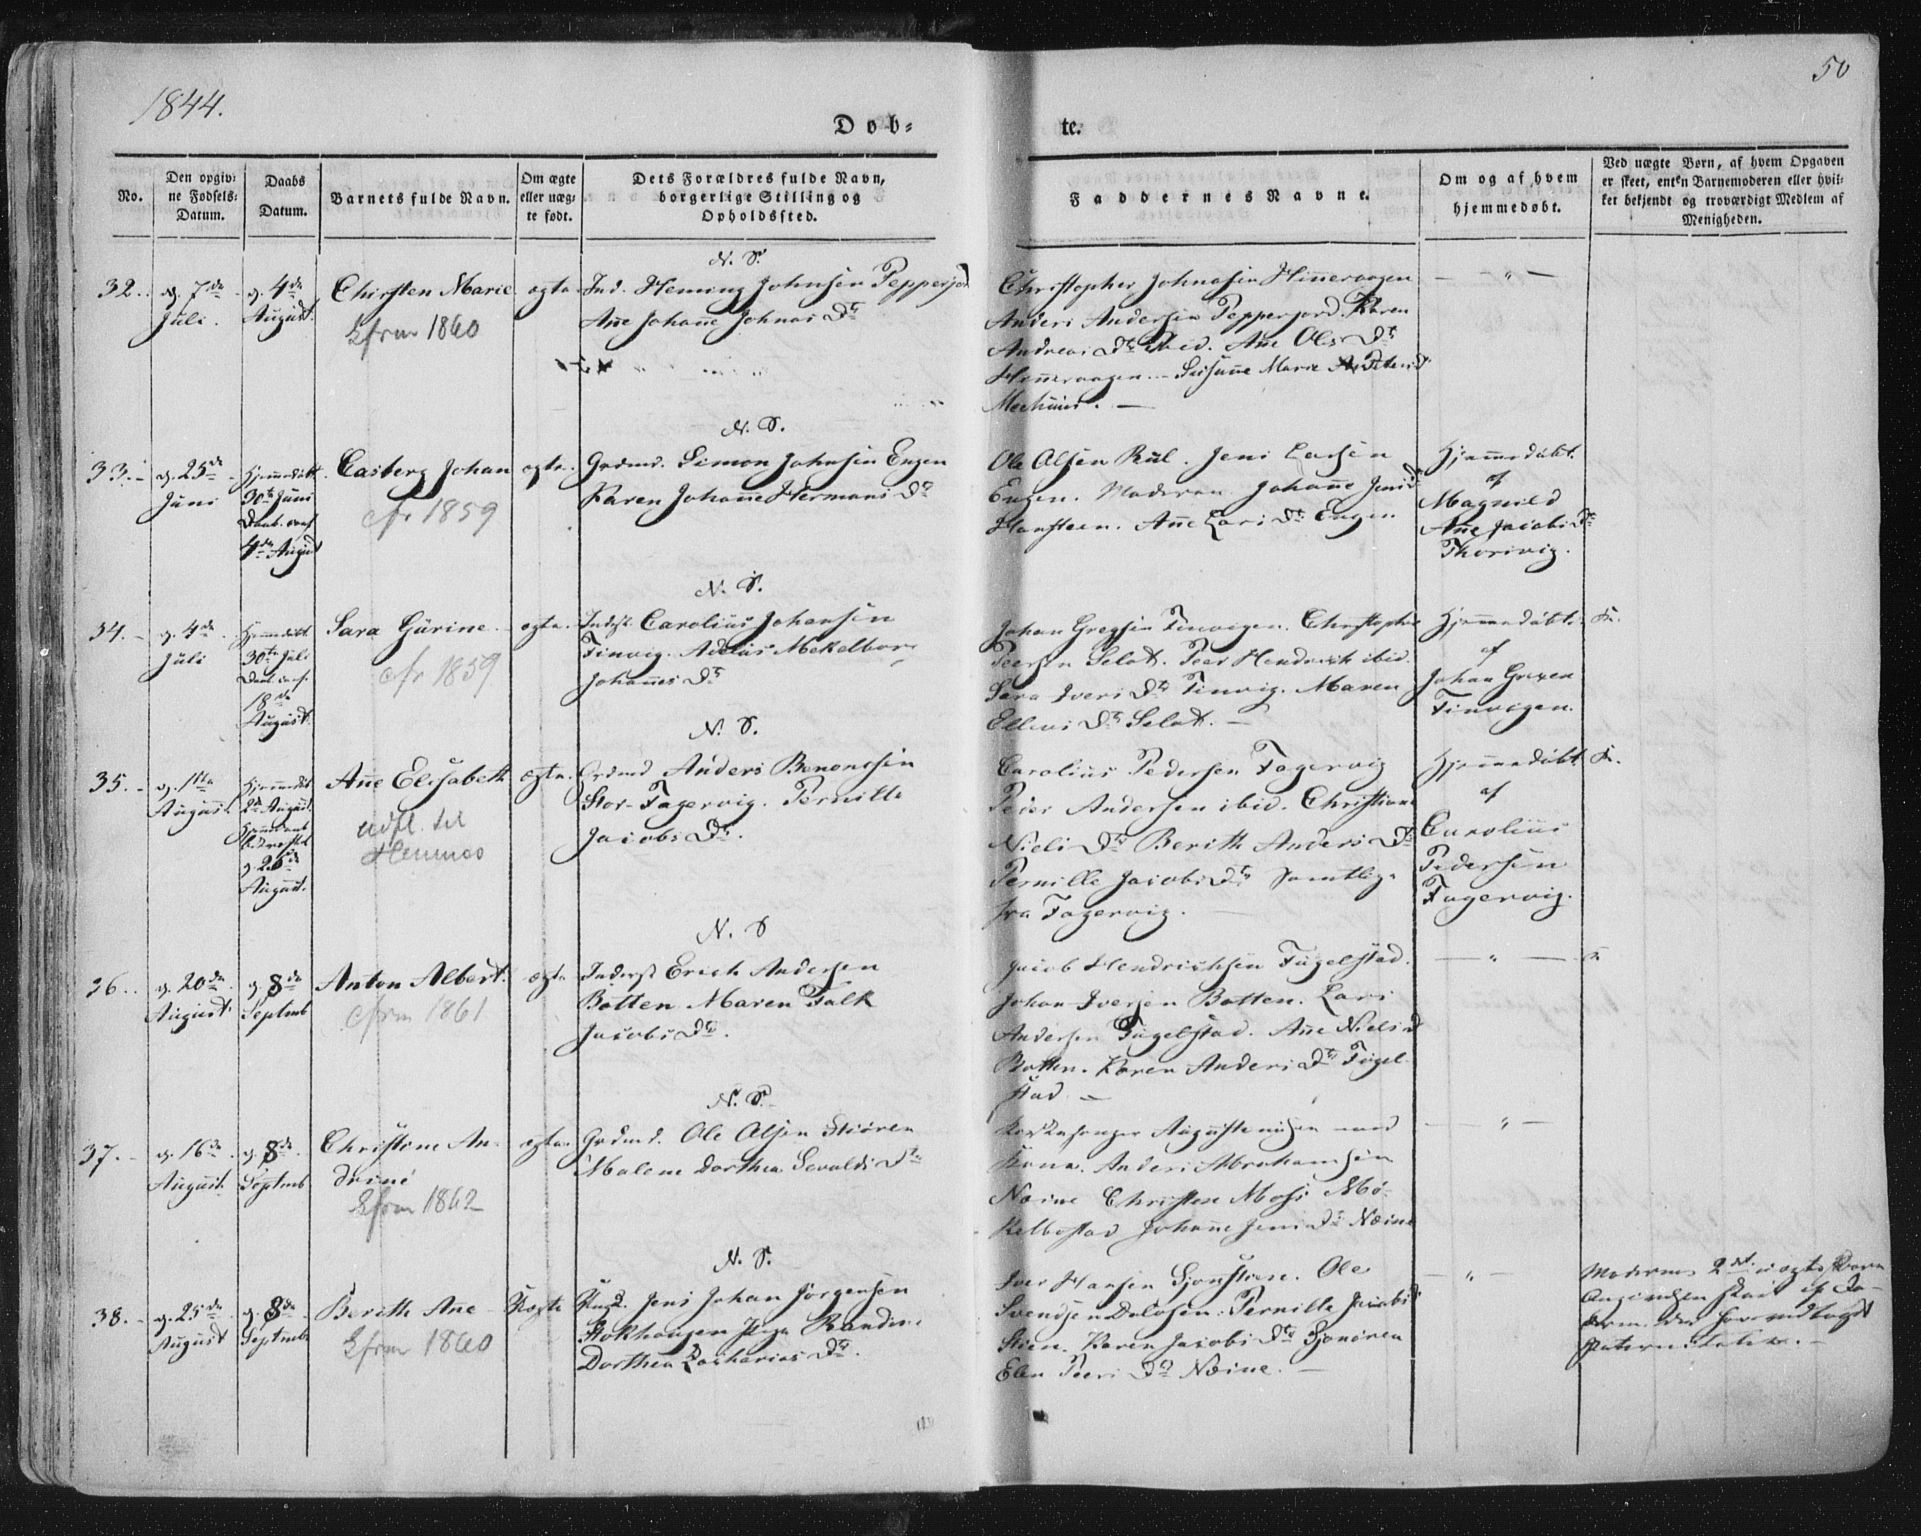 1844.
50
Døb-
te.
No.
Den opgiv-
ne Fødsels-
Datum.
Daabs
Datum.
Barnets fulde Navn.
Om ægte
eller uæg-
te født.
Dets Forældres fulde Navn,
borgerlige Stilling og
Opholdssted.
Faddernes Navne.
Om og af hvem
hjemmedøbt.
Ved uægte Børn, af hvem Opgaven
er skeet, enten Barnemoderen eller hvil-
ket bekjendt og troværdigt Medlem af
Menigheden.
N. S.
32.
d. 7de
Juli.
d. 4de
August.
Chirsten Marie
Kfrm 1860
ægte
Ind. Heming Johnsen Pepperjord
Ane Johane Johnas Dtr
Christopher Johnasen Hinnevaagen
Anders Andersen Pepperjord. Karen
Andreas Dtr ibid. Ane Ols Dtr
Hinnevaagen. Susane Marie
N. S.
33.
d. 25de
Juni
Hjemmedøbt
30te Juni
Daab. conf.
4de August
Casberg Johan
cfr 1859
ægte.
Grdmd. Simon Johnsen Engen
Karen Johane Hermans Dtr
Ole Olsen Rül. Jens Larsen
Engen. Moderen Johane Jens D
Hansteen. Ane Lars Dtr Engen
Hjemmedøbt.
af
Magnild
Ane Jacobs Dtr
Thorsvig.
N. S.
34.
d. 4de
Juli
Hjemmedøbt
30te Juli
Daab. conf.
18de
August.
Sara Gurine
cfr 1859
ægte.
Inderst Carolius Johansen
Finvig.
Johannes Dtr
Johan Gregsen Finvigen. Christopher
Peersen Selat. Peer Hendrich ibid.
Sara Ivers Dtr Finvig. Maren
Ellevs Dtr Selat.
Hjemmedøbt.
af
Johan Grexen
Finvigen.
N. S.
35.
d. 1ste
August.
Hjemmedøbt
2den August.
d. 26de
August.
Ane Elisabeth
udfl. til
Hemnes
ægte.
Grdmd Anders Benonssen
Stor-Fagervig. Pernille
Jacobs Dtr.
Carolius Pedersen Fagervig
Peder Andersen ibid. Christiane
Niels Dtr Berith Anders Dtr
Pernille Jacobs Dtr Samtlige
fra Fagervig.
Hjemmedøbt
af
Carolius
Pedersen
Fagervig.
N. S
36.
d. 20de
August.
d. 8de
Septmb
Anton Albert.
cfrm 1861
ægte
Inderst Erich Andersen
Botten Maren Falk
Jacobs Dtr.
Jacob Hendrichsen Fugelstad.
Johan Iversen Botten. Lars
Andersen Fugelstad. Ane Niels D
Botten. Karen Anders Dtr Fugel-
stad.
N. S.
37.
d. 16de
August.
d. 8de
Septmb
Christine An-
drine
Kfrm 1862
ægte.
Grdmd. Ole Olsen Stiøren
Malene Dorthea Sevalds Dtr
Kirkesanger Augustenisen med
Kone. Anders Abrahamsen
Næine Christen Moses Mø-
kelbostad Johane Jens Dtr Næine
N. S.
38.
d. 25de
August
d. 8de
Septmb
Berith Ane
Kfrm 1860
Uægte
Ungk. Jens Johan Jørgensen
Stokhaugen Pige Rander
Dorthea Zacharias Dtr.
Iver Hansen Sjonstrøe. Ole
Svendsen Dalosen. Pernille Jacobs
Stien. Karen Jacobs Dtr Sjonøren
Elen Peers Dtr Næine.
Moderens 2det uægte Barn
Angivelsen skeet af Fa-
deren der har vedtaget
Paterniteten.